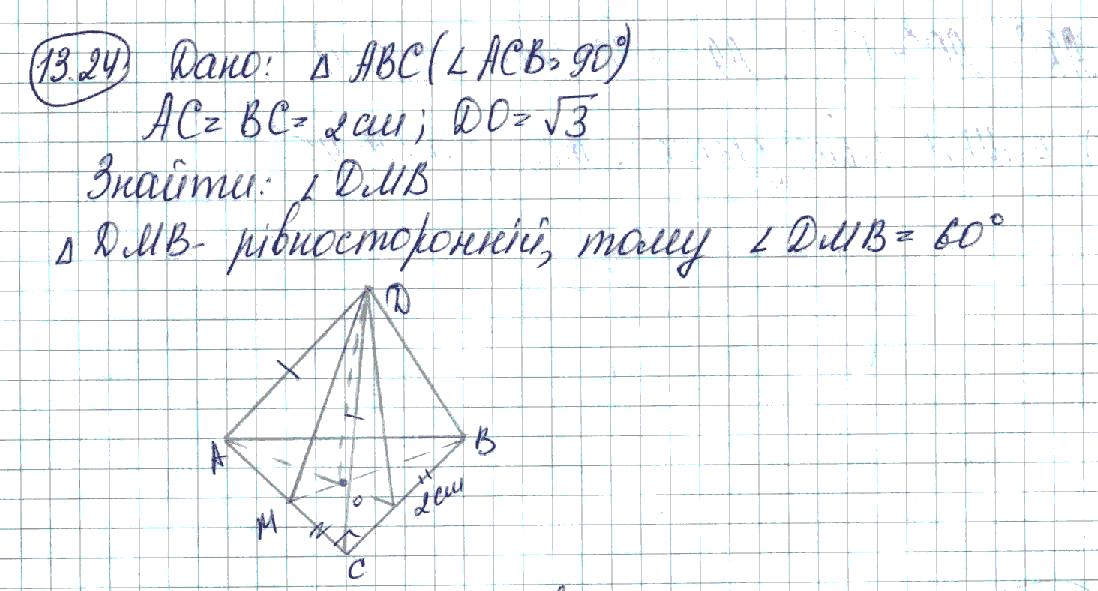 13.24 Дано: Δ ABC (∠ ACB = 90°)
AC = BC = 2 см; DO = √3
Знайти: ∠ DMB
Δ DMB - рівносторонній, тому ∠ DMB = 60°
D
A
B
M
O
2 см
C